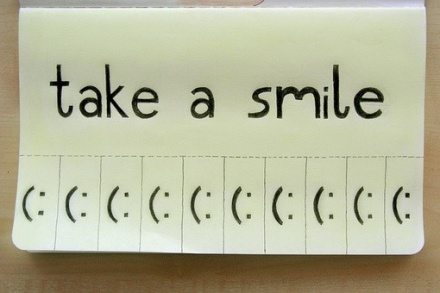 take a smile
(: (: (: (: (: (: (: (: (: (: